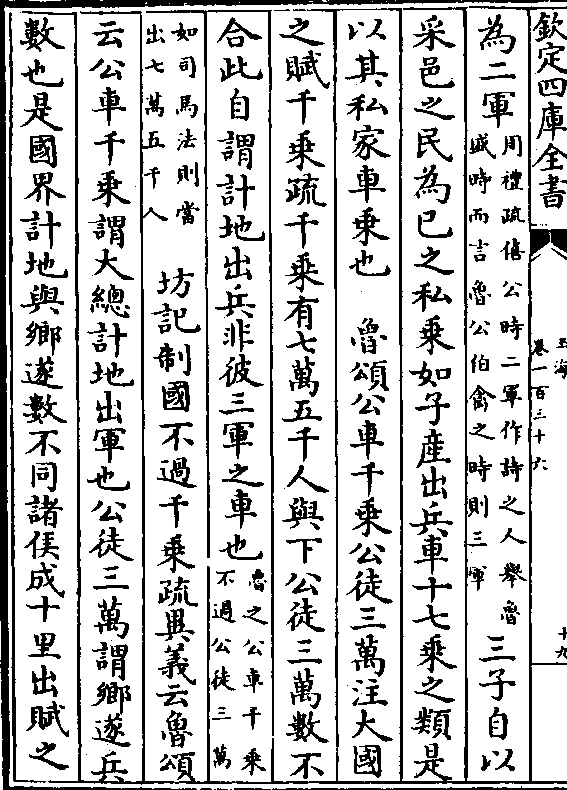 欽定四庫全書
玉海
卷一百三十六
十九
為二軍周禮疏僖公時二軍作詩之人舉魯盛時而言魯公伯禽之時則三軍三子自以
采邑之民為已之私乘如子産出兵車十七乘之類是
以其私家車乘也 魯頌公車千乘公徒三萬注大國
之賦千乘疏千乘有七萬五千人與下公徒三萬數不
合此自謂計地出兵非彼三軍之車也魯之公車千乘不過公徒三萬
如司馬法則當出七萬五千人 坊記制國不過千乘疏異義云魯頌
云公車千乘謂大總計地出軍也公徒三萬謂鄉遂兵
數也是國界計地與鄉遂數不同諸侯成十里出賦之